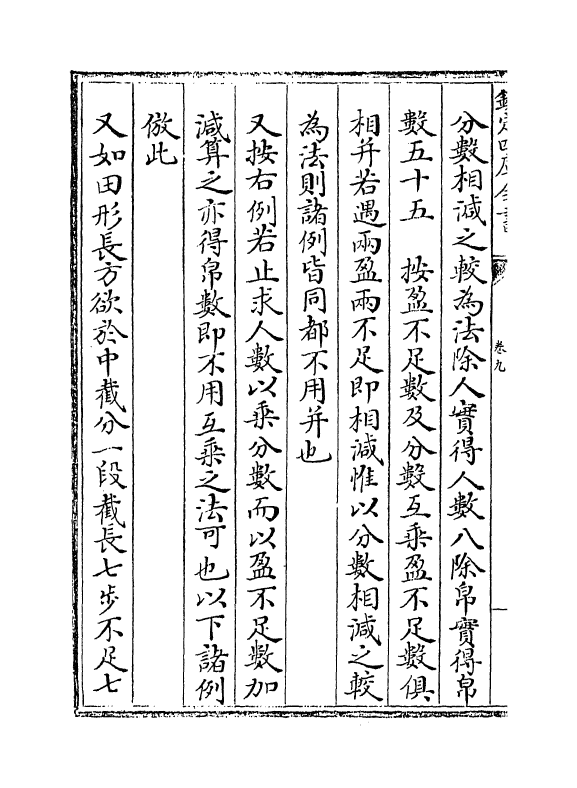 欽定四庫全書
卷九
分數相減之較為法除人實得人數八除帛實得帛
數五十五　按盈不足數及分數互乘盈不足數俱
相并若遇兩盈兩不足即相減惟以分數相減之較
為法則諸例皆同都不用并也
又按右例若止求人數以乘分數而以盈不足數加
減算之亦得帛數即不用互乘之法可也以下諸例
倣此
又如田形長方欲於中截分一段截長七步不足七